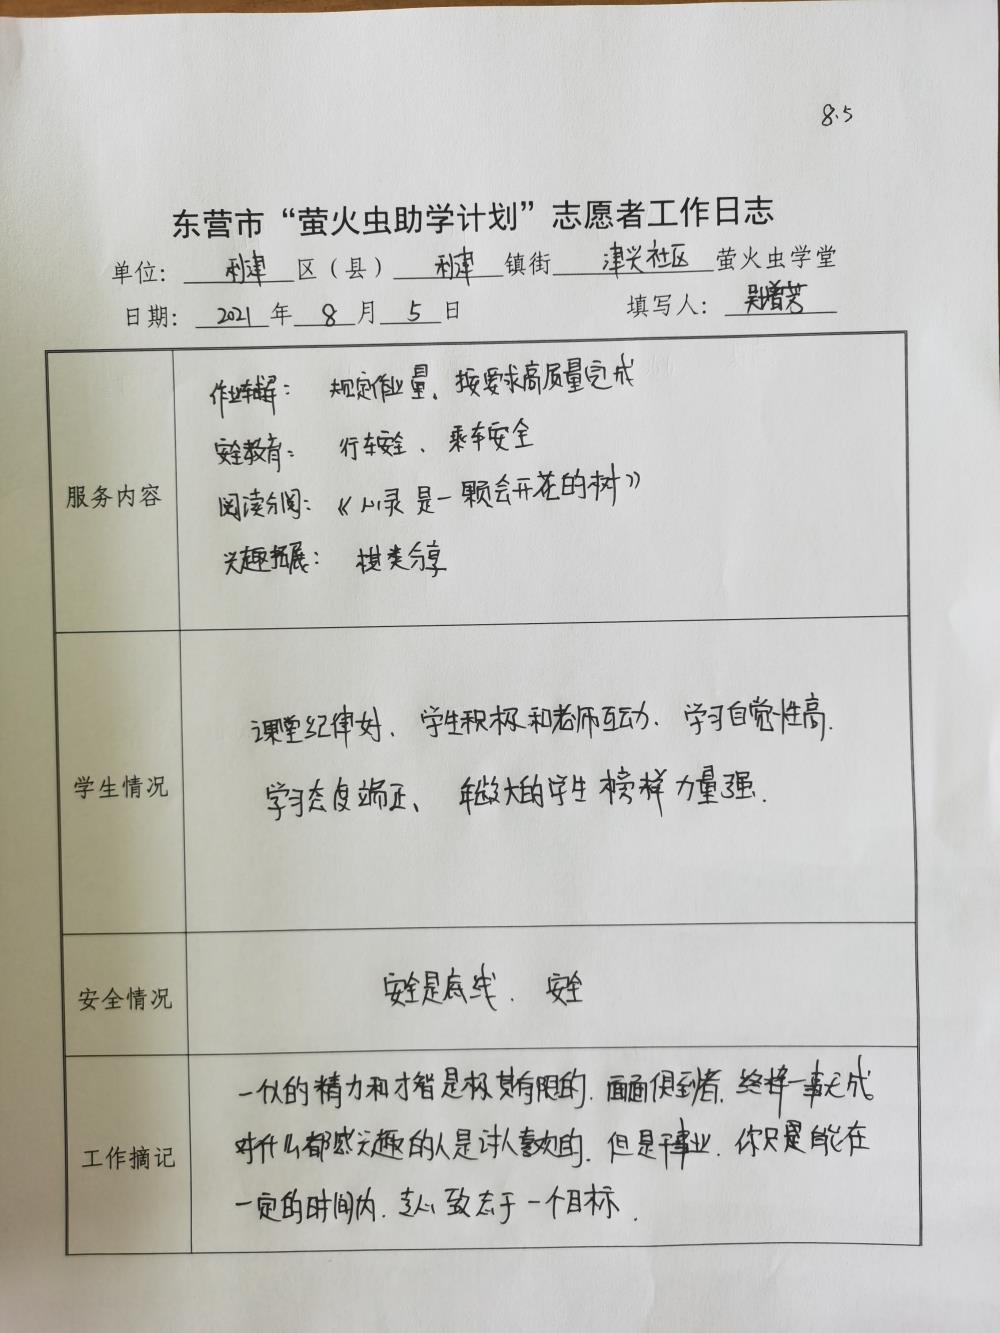 8.5
东营市“萤火虫助学计划”志愿者工作日志
单位：利津区（县）利津镇街津兴社区萤火虫学堂
日期：2021年8月5日 填写人：芳
服务内容
作业辅导： 规定作业量、按要求高质量完成
安全教育： 行车安全、乘车安全
阅读分阅：《心灵是一颗会开花的树》
兴趣拓展： 棋类分享
学生情况
课堂纪律好、学生积极和老师互动、学习自觉性高.
学习态度端正、年级大的学生榜样力量强.
安全情况
安全是底线. 安全
工作摘记
一个人的精力和才智是极其有限的.面面俱到者.终将一事无成
对什么都感兴趣的人是讨人喜欢的.但是干事业.你只是能在
一定的时间内.专心致志于一个目标.